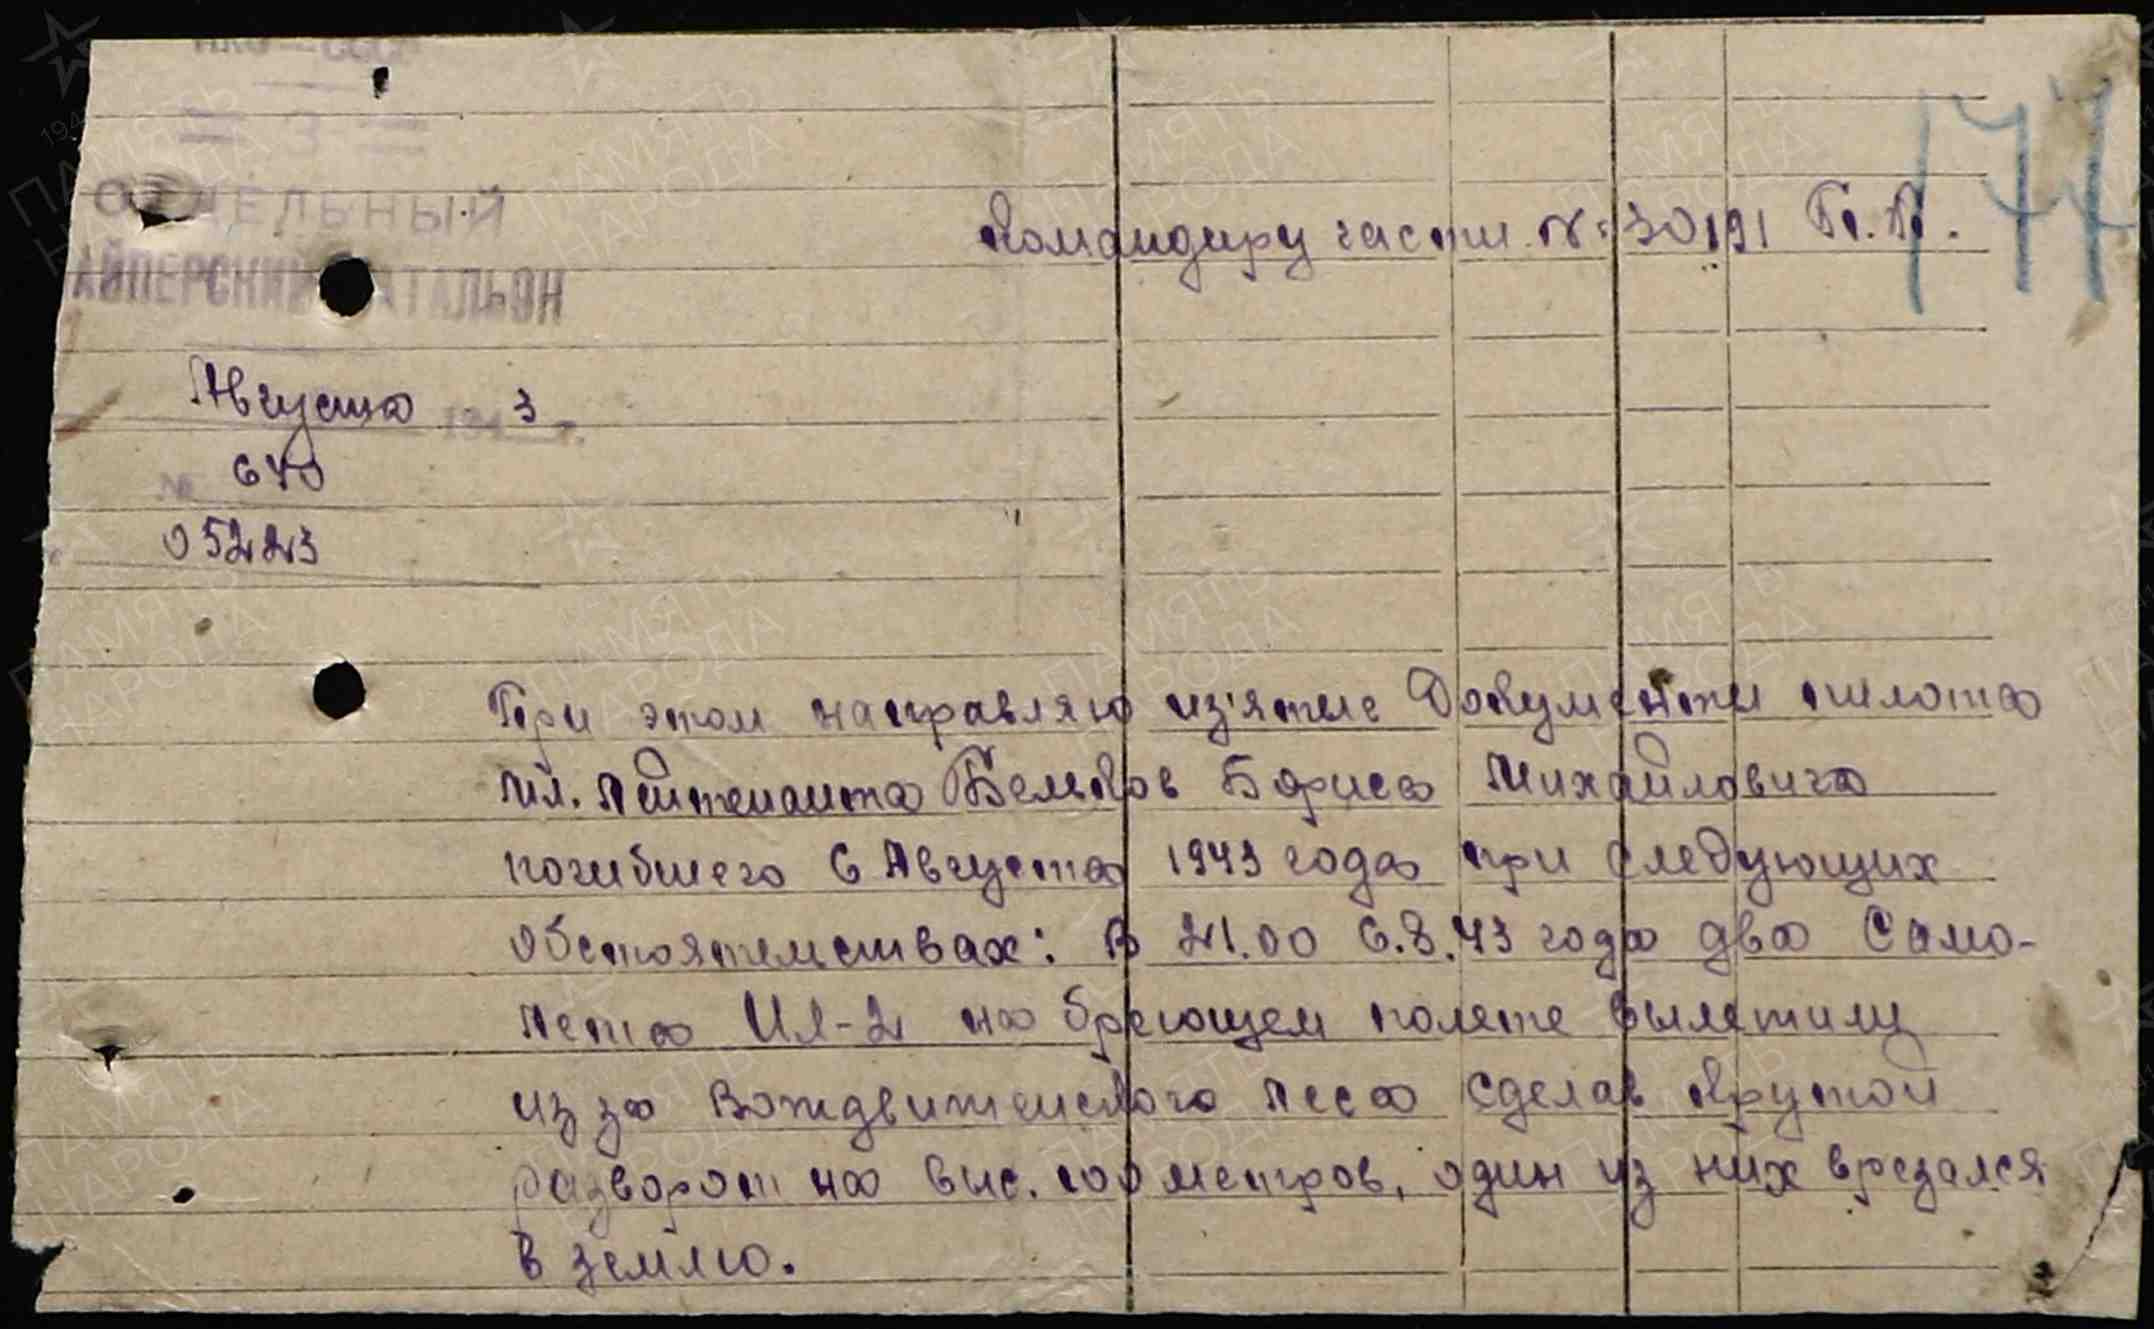 НКО СССР
= 3 =
ОТДЕЛЬНЫЙ
АЙПЕРСКИЙ БАТАЛЬОН
Августа 1943 г.
№ 640
05223
Командиру части №: 30191 П.П.
177
При этом направляю из'ятые документы пилота
мл. лейтенанта Бельков Бориса Михайловича
погибшего 6 Августа 1943 года при следующих
обстоятельствах: В 21.00 6.8.43 года два Само-
лета Ил-2 на бреющем полете вылетили
из за Вождвиженского леса сделав крутой
разворот на выс. 100 метров, один из них врезался
в землю.